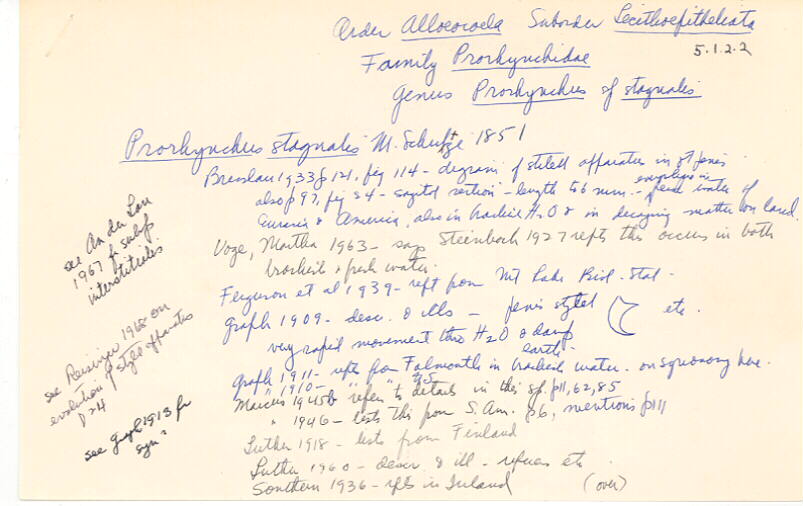 Order Alloeocoela Suborder Lecithoepitheliata
5.1.2.2
Family Prorhynchidae
Genus Prorhynchus of stagnalis
Prorhynchus stagnalis M. Schultze 1851
Bresslau 1933 p 121, fig 114 - diagram of stilett apparatus in penis
also p 97, fig 84 - sagital section - length to 6 mm. - fresh water of
Eurasia & America, also in brackish H2O & in decaying matter on land.
Voge, Martha 1963 - says Steinbock 1927 repts this occurs in both
brackish & fresh water.
Ferguson et al 1939 - rept from Mt Lake Biol. Stat.
Graff 1909 - desc. & ills - penis stylet etc.
very rapid movement thro H2O & damp
earth.
Graff 1911 - repts from Falmouth in brackish water. on synonomy here.
" 1910 -
Marcus 1945b "refers" to details in this sp. p11, 62, 85
" 1946 - lists this from S. Am. p6, mentions p111
Luther 1918 - lists from Finland
Luther 1960 - descr & ill - refers etc
Southern 1936 - repts in Ireland (over)
see An der Lan
1967 for subsp
interstitialis
see Reisinger 1968 on
evolution of stylet apparatus
p 24
see Graff 1913 for
syn.